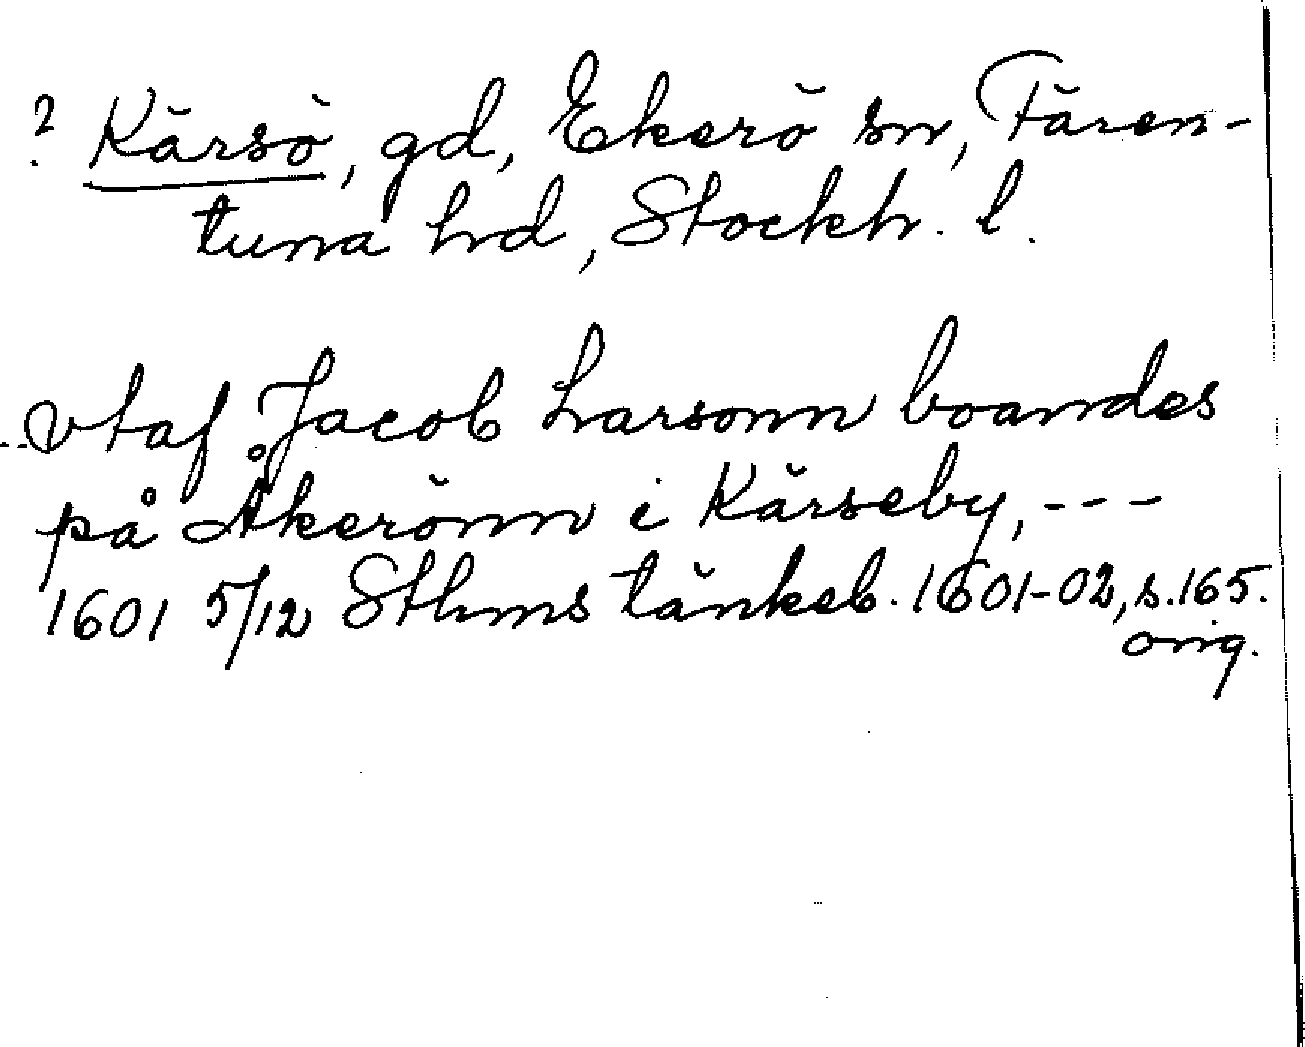 ? Kärsö, gd, Ekerö sn, Fären-
tuna hrd, Stockh. l.
--- vtaf Jacob Larsonn boandes
på Åkerönn i Kärseby, ---
1601 5/12 Sthms tänkeb. 1601-02, s.165.
orig.